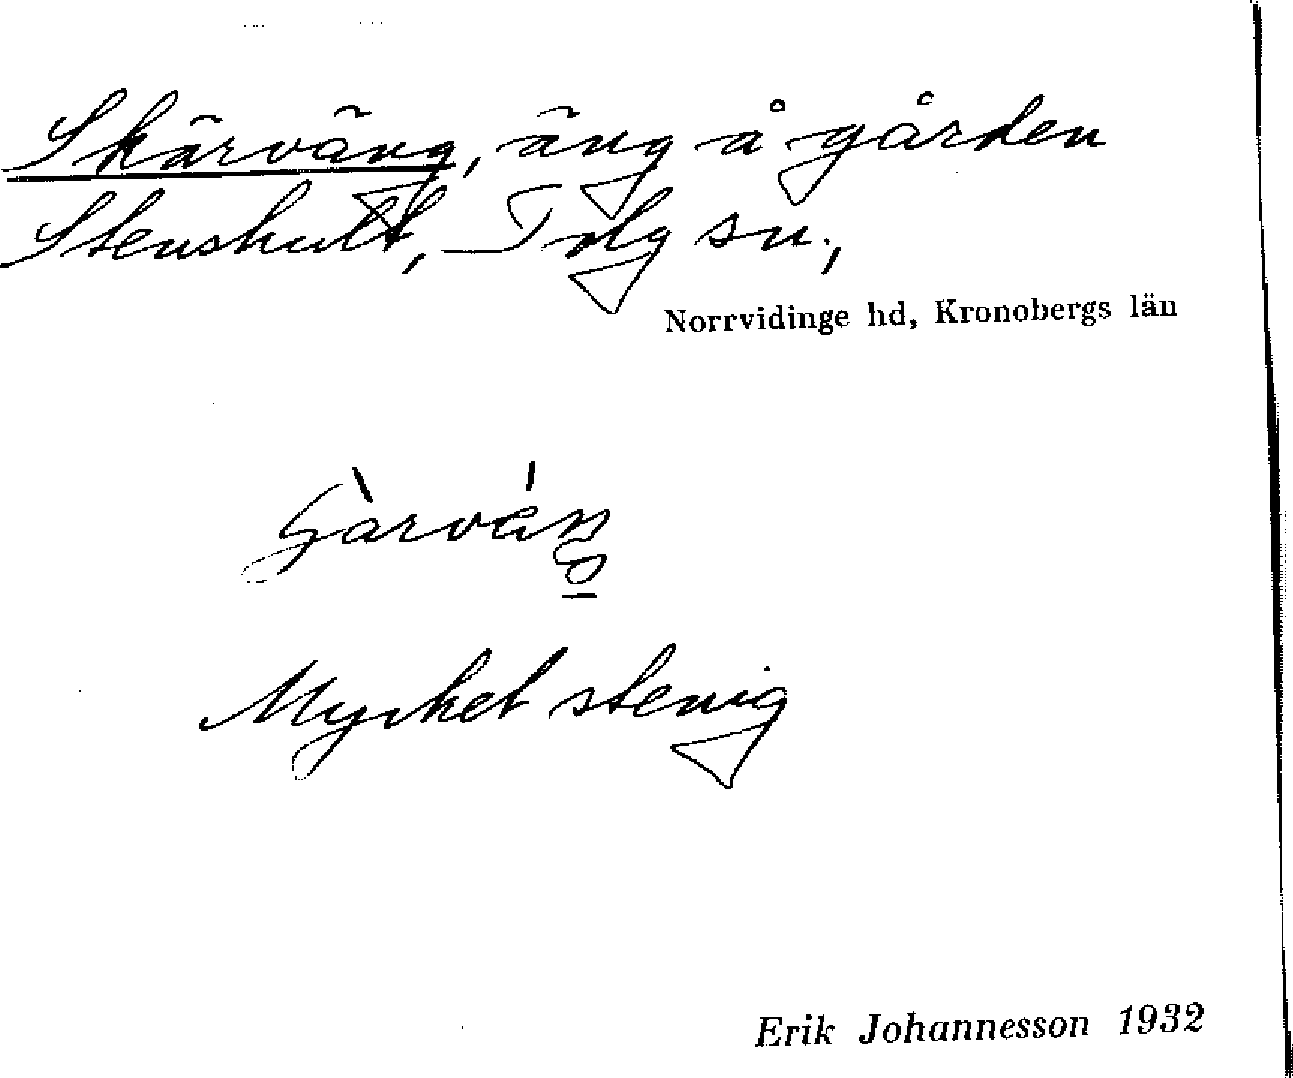 Skärväng, äng å gården
Stenshult, Tolg sn.,
Norrvidinge hd, Kronobergs län
Mycket stenig
Erik Johannesson 1932